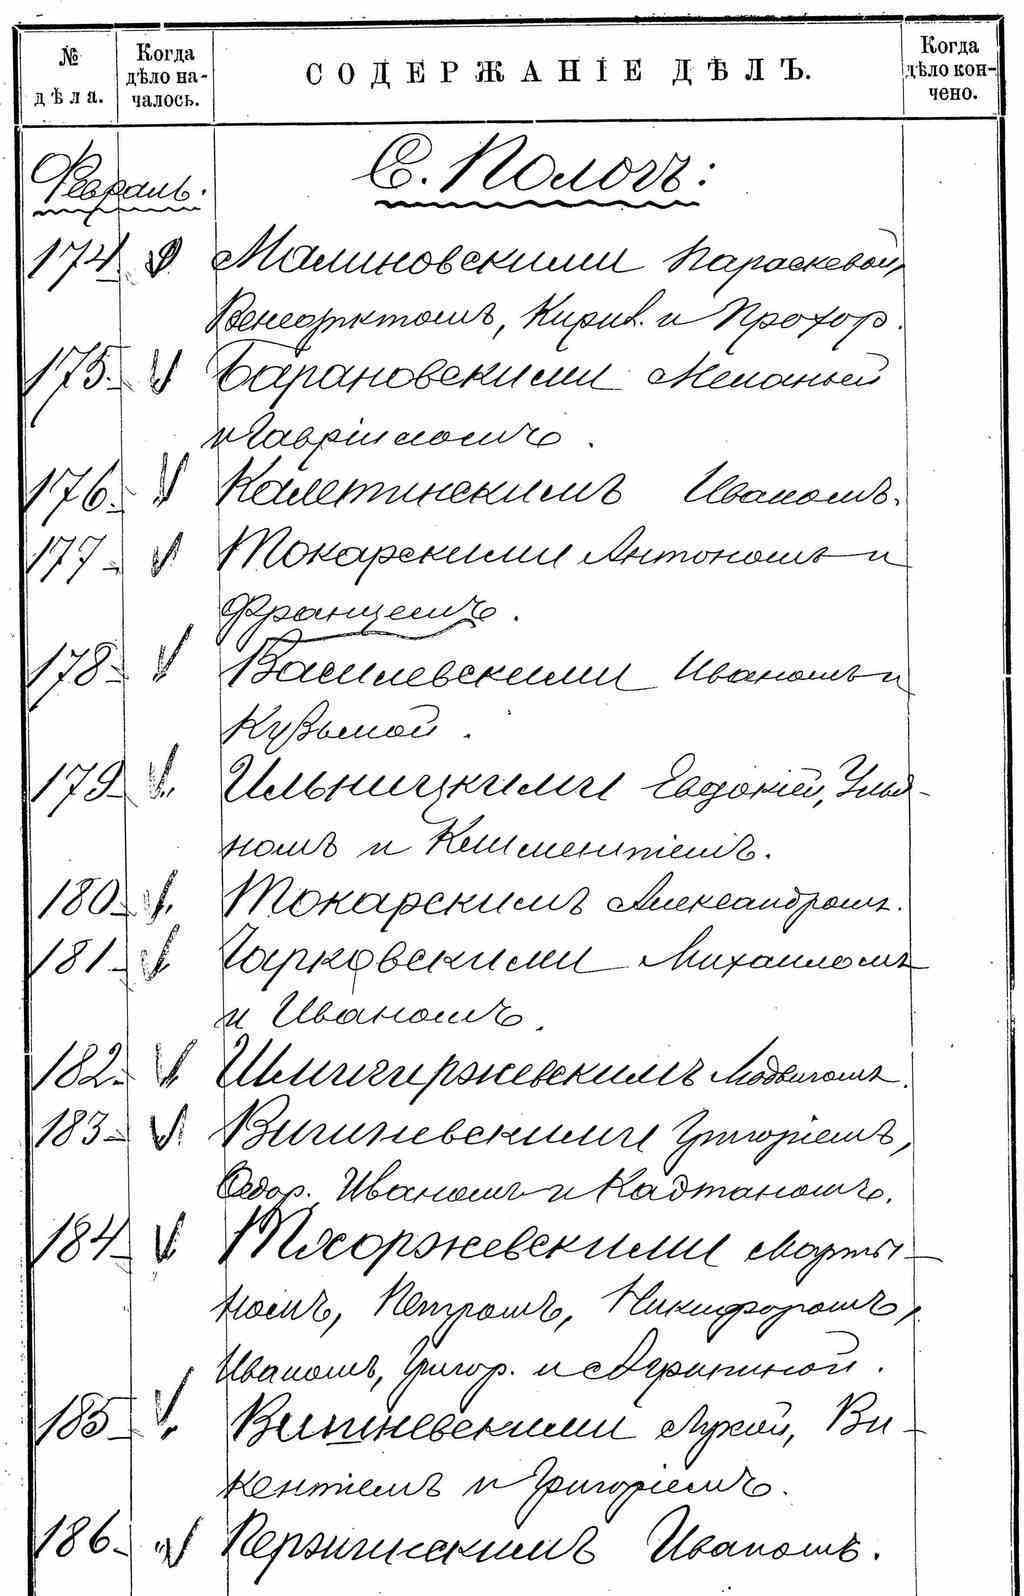 № дѣла.
Когда дѣло на-
чалось.
СОДЕРЖАНІЕ ДѢЛЪ.
Когда дѣло кон-
чено.
Февраль:
С. Пологъ:
174 Малиновскими Параскевой,
Венедиктомъ, Кирил. и Прохор.
175. Барановскими Меланьей
и Гавріиломъ.
176. Калетинскимъ Иваномъ.
177 Токарскими Антономъ и
Францемъ.
178 Василевскими Иваномъ и
Кузьмой.
179 Ильницкими Евдокіей, Улья-
номъ и Климентіемъ.
180 Токарскимъ Александромъ.
181 Чарковскими Михаиломъ
и Иваномъ.
182. Шлигиржевскимъ Людвигомъ.
183 Вишневскими Григоріемъ,
Федор. Иваномъ и Каэтаномъ.
184 Тхоржевскими Марты-
номъ, Петромъ, Никифоромъ,
Иваномъ, Григор. и Агрипиной.
185 Вишневскими Лукой, Ви-
кентіемъ и Григоріемъ.
186. Иваномъ.